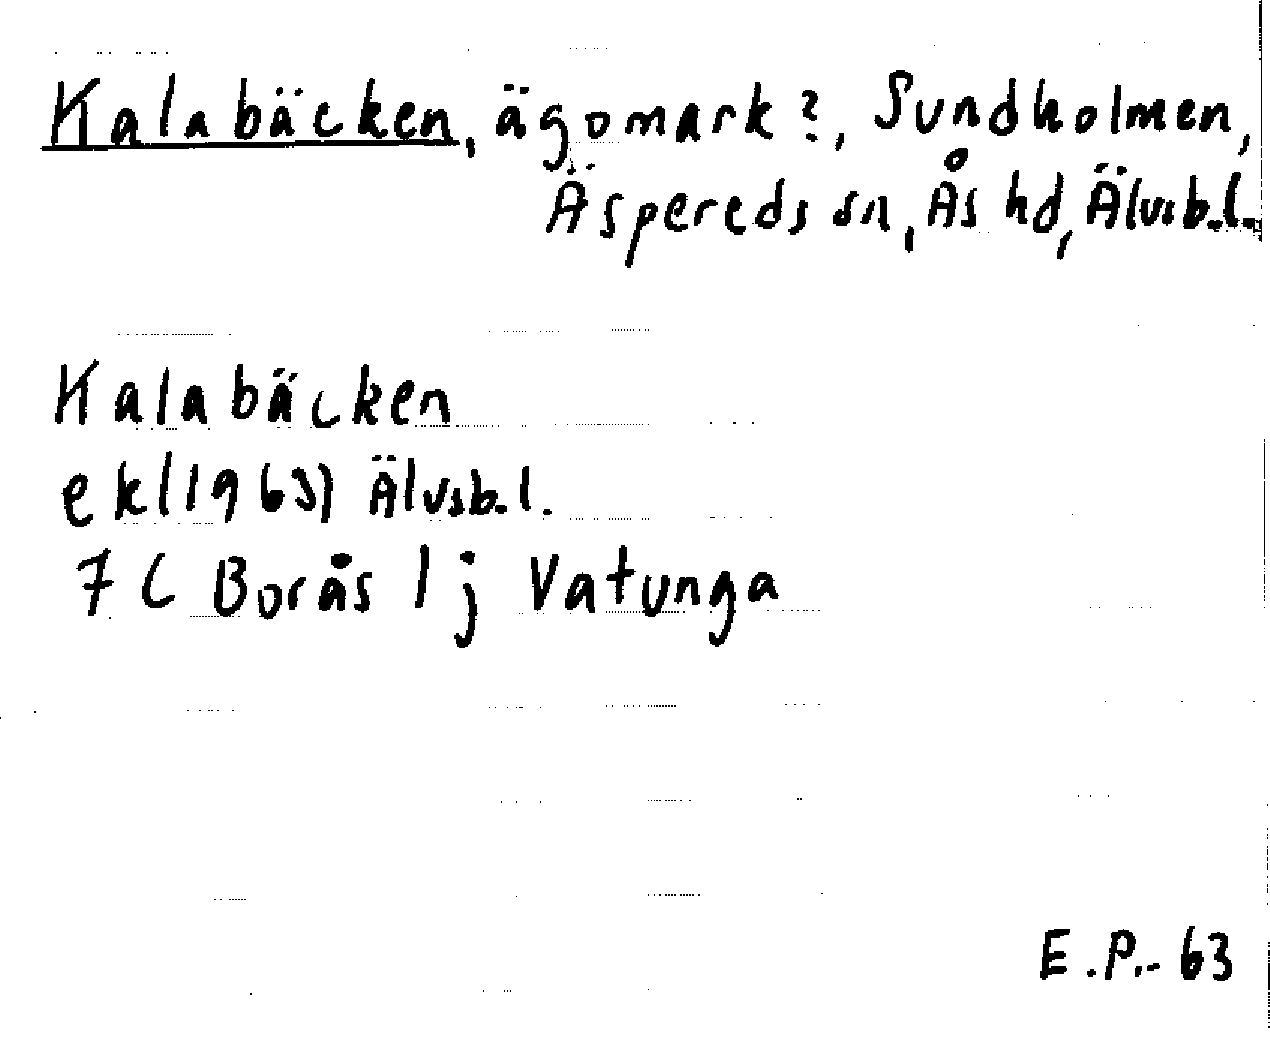 Kalabäcken, ägomark?, Sundholmen,
Äspereds sn, Ås hd, Älvsb.l.
Kalabäcken
ekl(1963) Älvsb.l.
7C Borås 1j Vatunga
E.P.-63